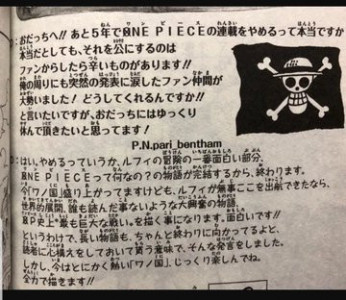 おだっちへ!! あと5年でONE PIECEの連載をやめるって本当ですか
本当だとしても、それを公にするのは
ファンからしたら辛いものがあります!!
俺の周りにも突然の発表に涙したファン仲間が
大勢いました! どうしてくれるんですか!!
と言いたいですが、おだっちにはゆっくり
休んで頂きたいと思ってます!
P.N.pari_bentham
はい。やめるっていうか、ルフィの冒険の一番面白い部分、
ONE PIECEって何なの?の物語が完結するから、終わります。
今「ワノ国」盛り上がってますけども、ルフィが無事ここを出航できたなら、
世界の展開、誰も読んだ事ないような大興奮の物語。
史上"最も巨大な戦い"を描く事になります。面白いです!!
というわけで、長い物語も、ちゃんと終わりに向かってるよと、
読者に心構えをしておいて貰う意味で、そんな発言をしました。
しかし、今はとにかく熱い「ワノ国」、じっくり楽しんでね。
全力で描きます!!